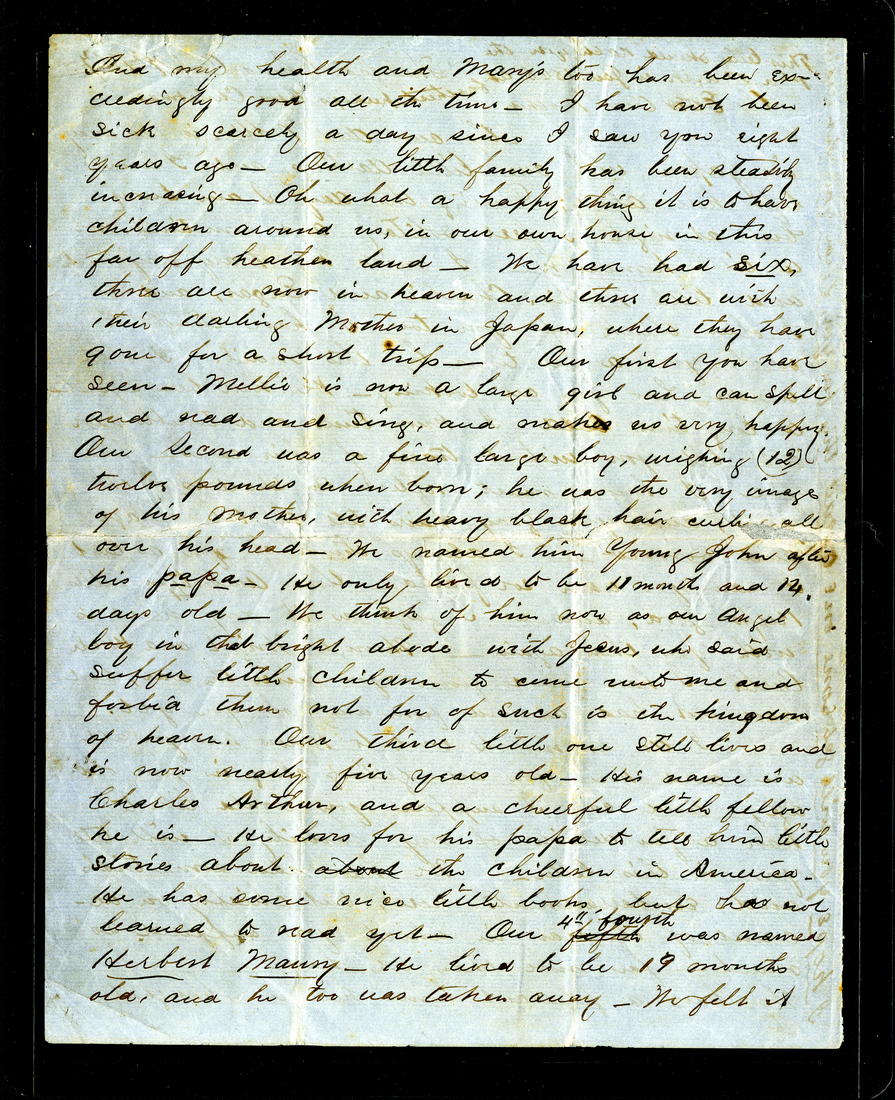 And my health and Mary's too has been ex-
ceedingly good all the time — I have not been
sick scarcely a day since I saw you eight
years ago — Our little family has been steadily
increasing — Oh what a happy thing it is to have
children around us, in our own house in this
far off heathen land — We have had six,
three are now in heaven and three are with
their darling Mother in Japan, where they have
gone for a short trip — Our first you have
seen — Mellie is now a large girl and can spell
and read and sing, and makes us very happy.
Our Second was a fine large boy, weighing (12)
twelve pounds when born; he was the very image
of his Mother, with heavy black hair curling all
over his head — We named him Young John after
his papa — He only lived to be 11 month and 14
days old — We think of him now as our Angel
boy in that bright abode with Jesus, who said
Suffer little children to come unto me and
forbid them not for of such is the kingdom
of heaven. Our third little one still lives and
is now nearly five years old — His name is
Charles Arthur, and a cheerful little fellow
he is — He loves for his papa to tell him little
stories about about the children in America —
He has some nice little books, but has not
learned to read yet — Our fifth 4th, fourth was named
Herbert Maury — He lived to be 19 months
old, and he too was taken away — We felt it